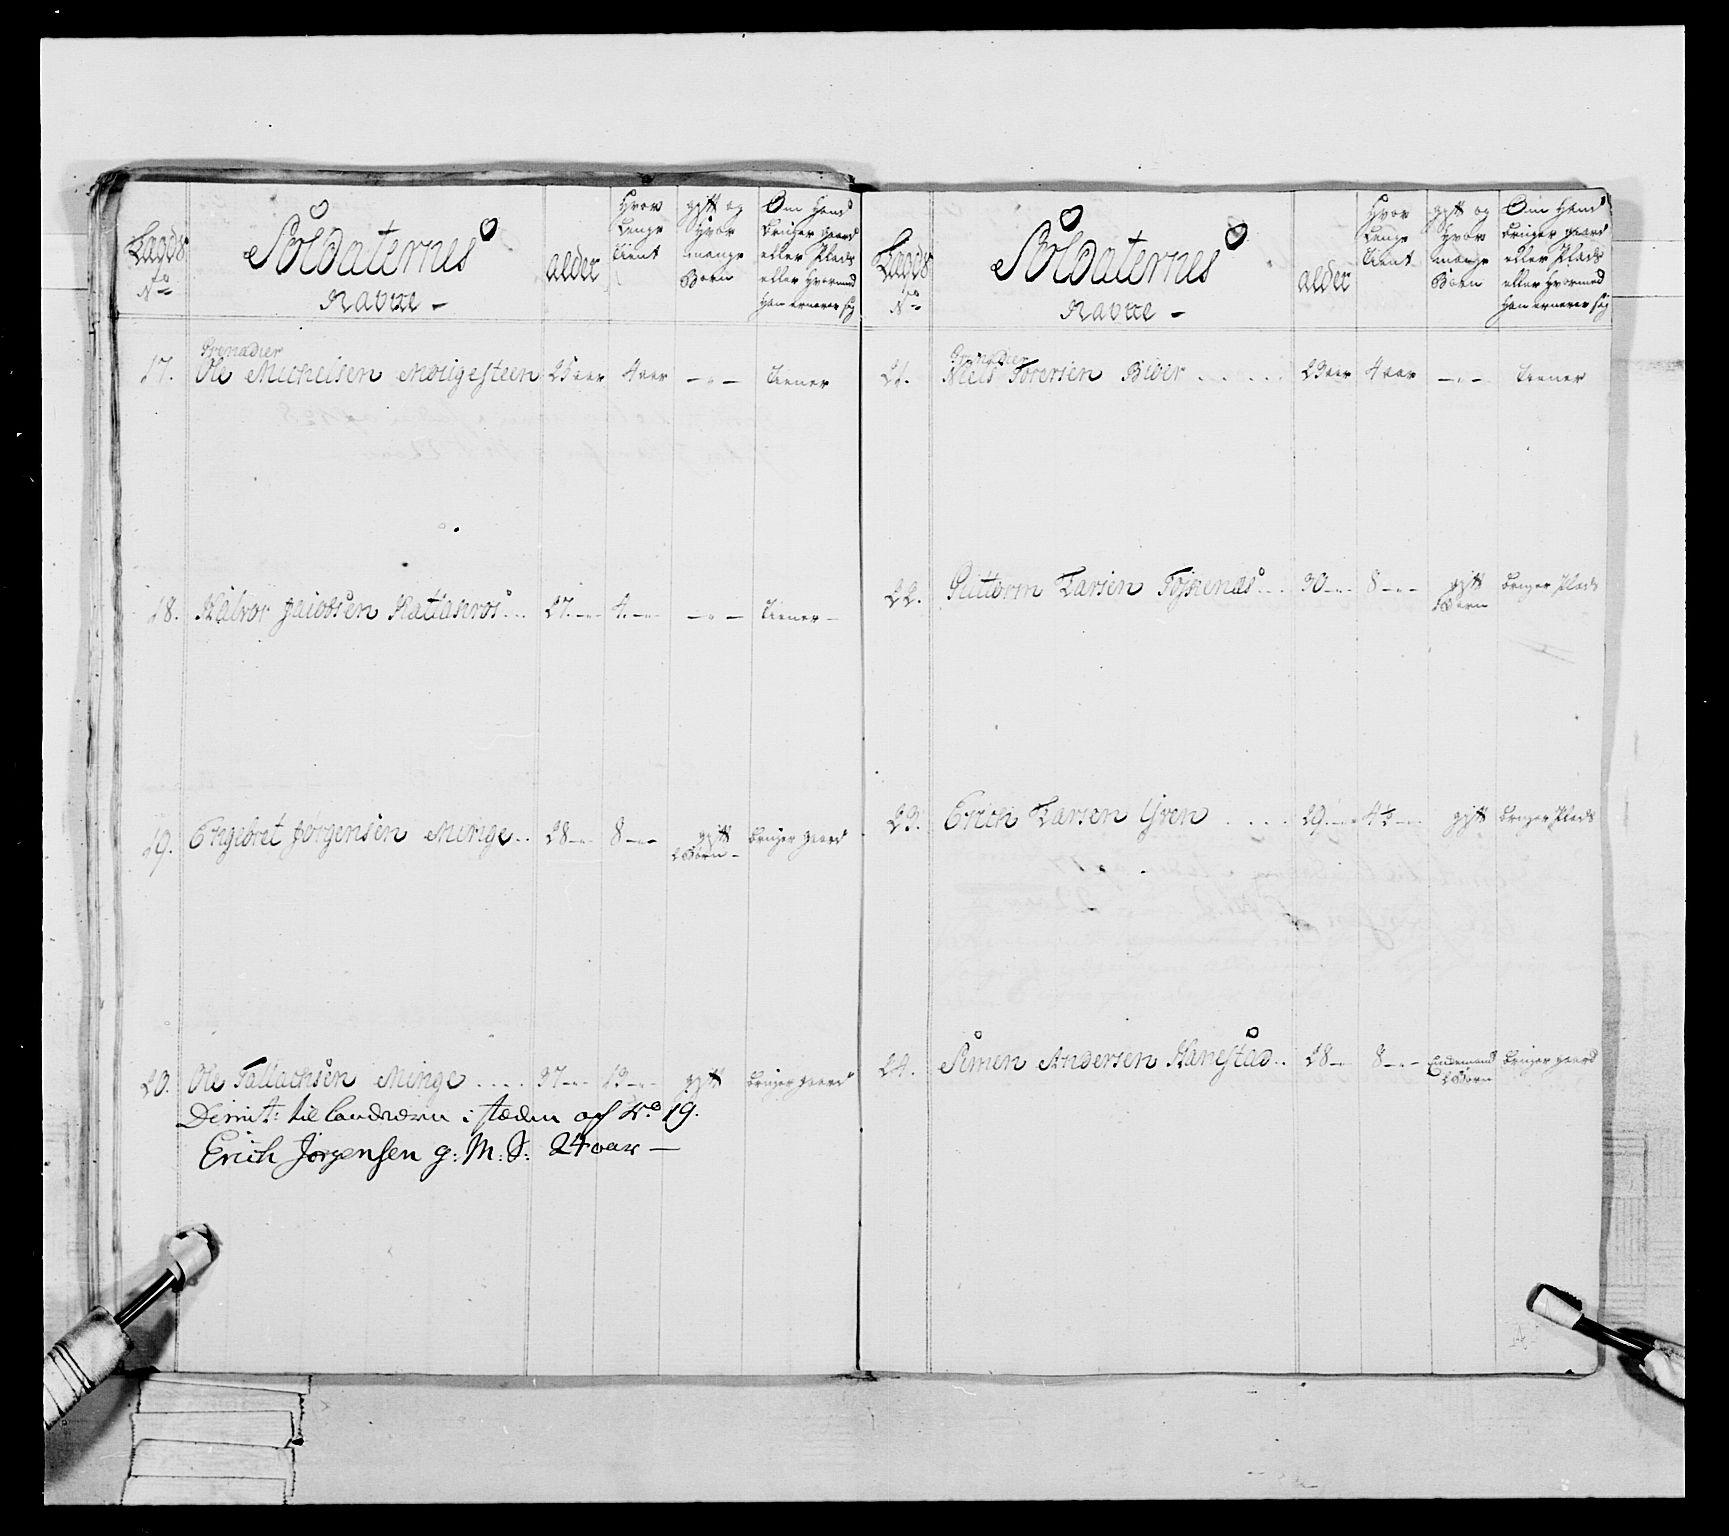 Lagds No
Soldaternes
Navne -
alder
Hvor Lenge tient
gift og Hvor mange Børn
Om Hand bruger gaard eller Plads eller Hvormed Han ernerer sig
Grenadeer
17. Ole Michelsen Mougesteen 25 aar 4 aar — " — tiener
18. Halvor Jacobsen 27 — " — 4 — " — — " — tiener —
19. Engebret Jørgensen Minge .. 28 — " — 8 — " — gift 2 Børn — bruger gaard
20. Ole Tallachsen Minge .... 37 — " — 13 — " — gift bruger gaard
Dimit: til landværn i stæden af No 19.
Erich Jørgensen g: M: S: 24 aar —
Lagds No
Soldaternes
Navne -
alder
Hvor Lenge tient
gift og Hvor mange Børn
Om Hand bruger gaard eller Plads eller Hvormed Han ernerer sig
Grenadeer
21. Niels Torersen ..... 23 aar 4 aar — " — tiener
22. Guttorm Larsen ... 30 — " — 8 — " — gift Børn bruger Plads
23. Erich Larsen Gren ..... 29 — " — 4½ — " — gift bruger Plads
24. Simen Andersen Hanestad .. 28 — " — 8 — " — Enkemand Børn bruger gaard